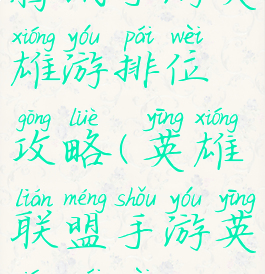 xióng yóu pái wèi
雄游排位
gōng lüè yīng xióng
攻略(英雄
lián méng shǒu yóu yīng
联盟手游英